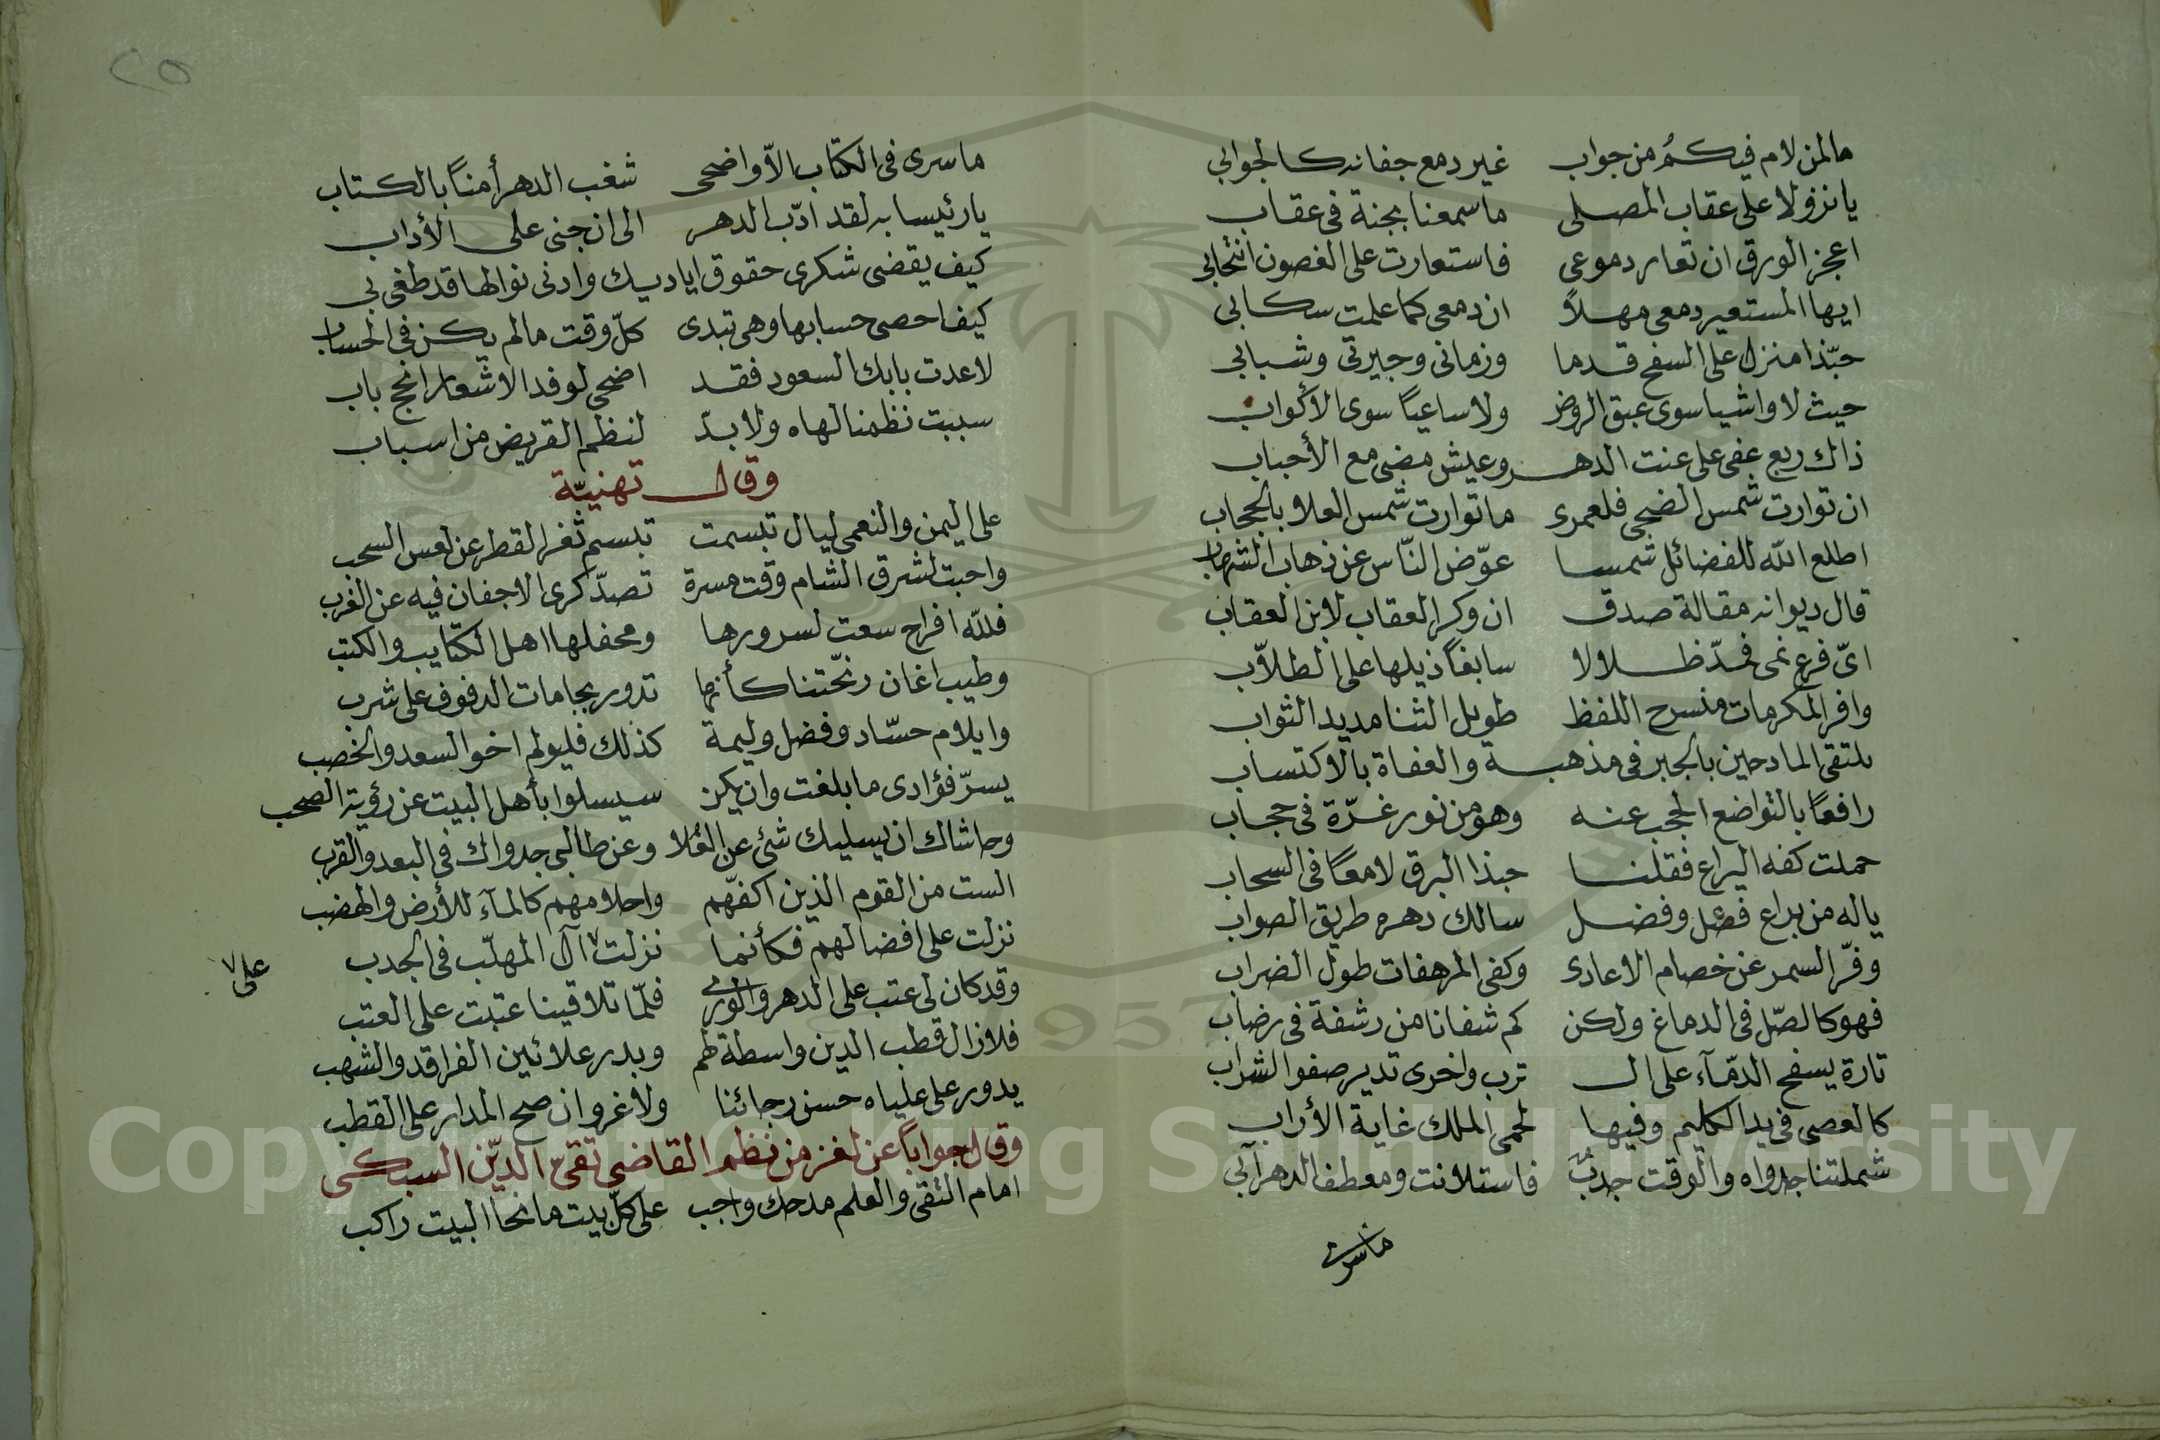 مالمن لام فيكمُ من جواب غير دمع جفانه كالجوابي
يا نزولا على عقاب المصلى ما سمعنا بجنة في عقاب
اعجز الورق ان تعار دموعي فاستعارت على الغصون انتحابي
ايها المستعير دمعي مهلاً ان دمعي كما علمت سكابي
حبّذا منزل على السفح قدما وزماني وجيرتي وشبابي
حيث لا واشيا سوى عبق الروض ولا ساعياً سوى الأكواب
ذاك ربع عفى على عنت الدهر وعيش مضى مع الأحباب
ان توارت شمس الضحى فلعمرى ما توارت شمس العلا بالحجاب
اطلع الله للفضائل شمسا عوّض النّاس عن ذهاب الشهاب
قال ديوانه مقالة صدق ان وكر العقاب لابن العقاب
اىّ فرع نمى فمدّ ظلالا سابغاً ذيلها على الطلاّب
وافر المكرمات منسرح اللفظ طويل الثنا مديد الثواب
يلتقى المادحين بالجبر في مذهبه والعفاة بالاكتساب
رافعاً بالتواضع الحجب عنه وهو من نور غرّة في حجاب
حملت كفه اليراع فقلنا حبذا البرق لامعاً في السحاب
ياله من يراع فصل وفضل سالك دهره طريق الصواب
وفّر السمر عن خصام الاعادى وكفى المرهفات طول الضراب
فهو كالصّل في الدماغ ولكن كم شفانا من رشفة في رضاب
تارة يسفح الدمّآء على ال ترب واخرى تدير صفو الشراب
كالعصى في يد الكليم وفيها لحمى الملك غاية الأراب
شملتنا جدواه والوقت جدبٌ فاستلانت ومعطف الدهر آبي
ماسرى
٢٥
ما سرى في الكتاب الاّ واضحى شغب الدهر أمناً بالكتاب
يا رئيسا به لقد ادّب الدهر الى ان جنى على الأداب
كيف يقضى شكرى حقوق اياديك وادنى نوالها قد طغى بي
كيف احصى حسابها وهي تبدى كلّ وقت مالم يكن في الحساب
لا عدت بابك السعود فقد اضحى لوفد الاشعار انجح باب
سببت نظمنا لهاه ولا بدّ لنظم القريض من اسباب
وقال تهنيّة
على اليمن والنعمى ليال تبسمت تبسم ثغر القطر عن لعس السحب
واحبت لشرق الشام وقت مسرة تصدّ كرى الاجفان فيه عن الغرب
فللّه افراح سعت لسرورها ومحفلها اهل الكتايب والكتب
وطيب اغان رنحّتنا كأنها تدور بجامات الدفوف على شرب
وايلام حسّاد وفضل وليمة كذلك فليولم اخو السعد والخصب
يسرّ فؤادى ما بلغت وان يكن سيسلوا بأهل البيت عن رؤية الصحب
وحاشاك ان يسليك شئ عن العُلا وعن طالبى جدواك في البعد والقرب
الست من القوم الذين اكفهّم واحلامهم كالمآء للأرض والهضب
نزلت على افضالهم فكأنما نزلت ٧ آل المهلّب في الجدب
على ٧
وقد كان لي عتب على الدهر والورى فلمّا تلاقينا عتبت على العتب
فلا زال قطب الدين واسطة لهم وبدر علا بين الفراقد والشهب
يدور على علياه حسن رجائنا ولا غرو ان صح المدار على القطب
وقال جواباً عن لغز من نظم القاضي تقيّ الديّن السبكي
امام التقى والعلم مدحك واجب على كلّ بيت ما نحا البيت راكب